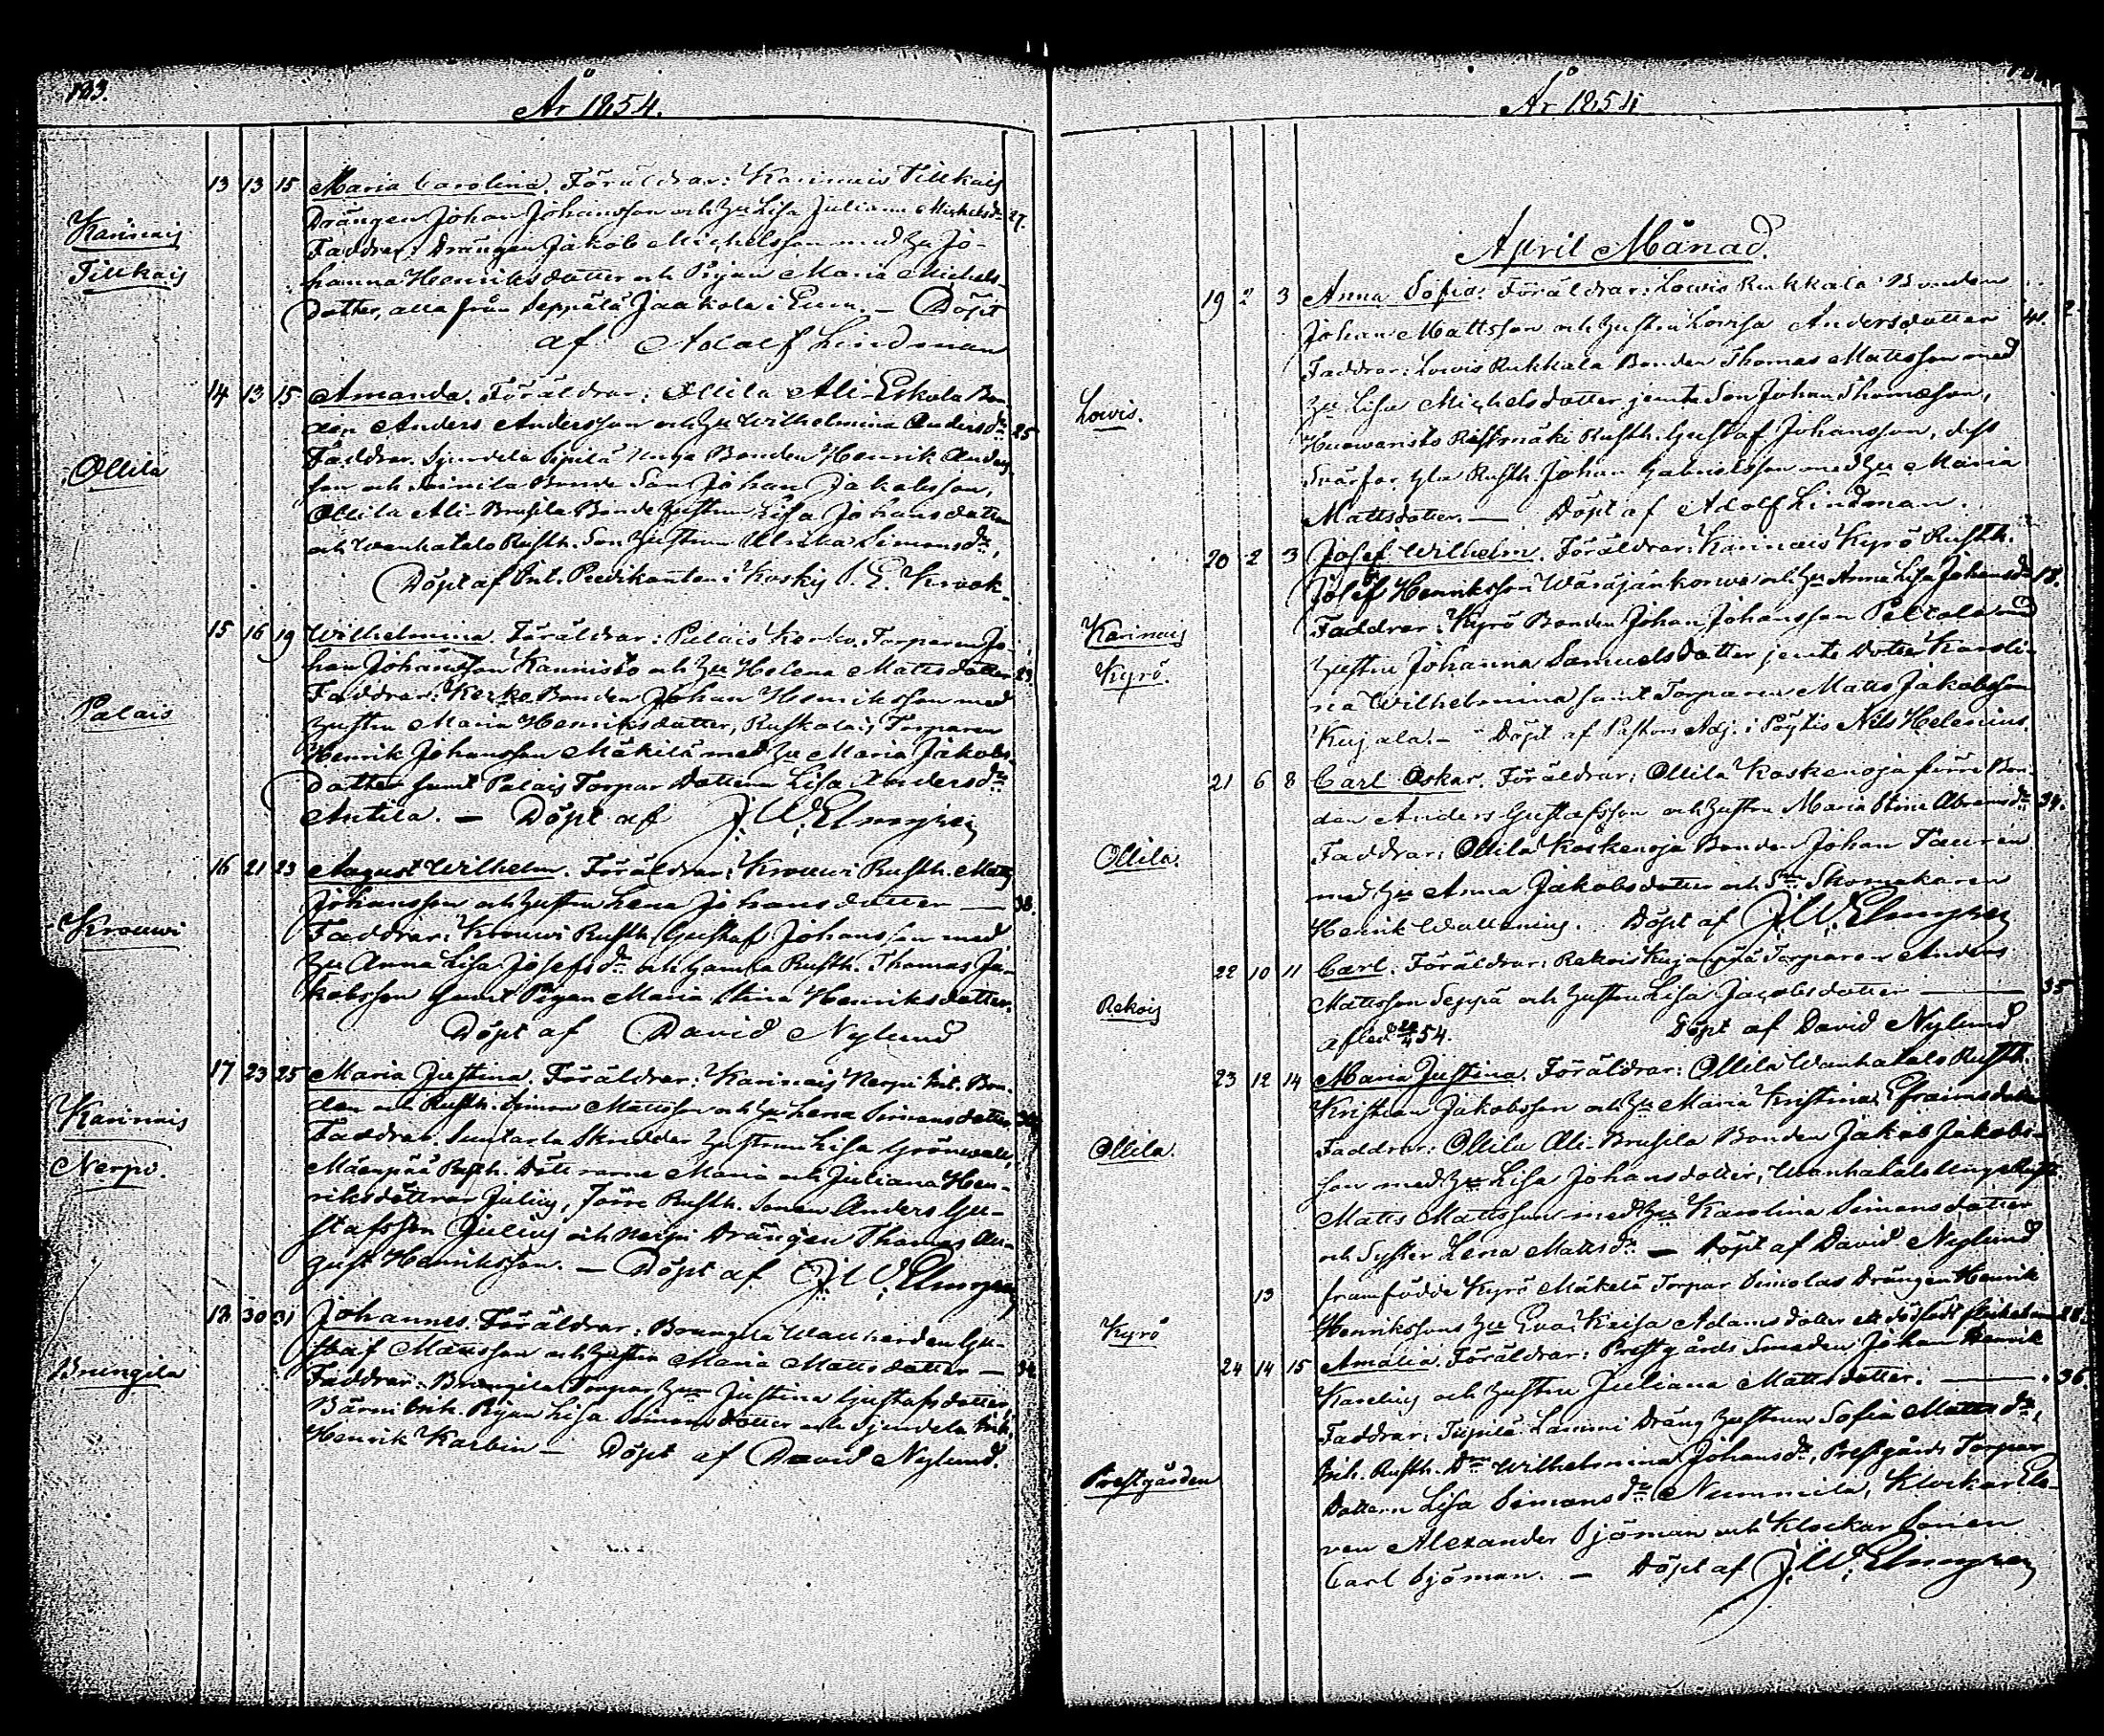 183.
År 1854.
13 13 15 Maria Carolina. Föräldrar: Karinais Tillkais
Karinais
Tillkais
Drängen Johan Johansson och Hu Lisa Juliana Michelsdr 27.
Faddrar: Drängen Jakob Michelsson med Hu Jo-
hanna Henriksdotter och Pigan Maria Michels-
dotter, alla från Seppälä Jaakola i Eura. — Döpt
af Adolf Lindman
14 13 15 Amanda. Föräldrar: Ollila Ali-Eskola Bon-
Ollila
den Anders Andersson och Hu Wilhelmina Andersdr 25
Faddrar. Sjundela Pipilä Unga Bonden Henrik Anders-
son och Bonde Son Johan Jakobsson,
Ollila Ali-Brusila Bonde Hustrun Lisa Johansdotter
och Wanhatalo Rusth. Son Hustrun Ulrika Simonsdr,
Döpt af Int. Predikanten i Koskis P. E. Krook.
15 16 19 Wilhelmina. Föräldrar: Palais Kerko. Torparen Jo-
Palais
han Johansson Kannisto och Hu Helena Mattsdotter 29.
Faddrar: Kerko Bonden Johan Henriksson med
Hustru Maria Henriksdotter, Ruskala, Torparen
Henrik Johansson Mäkilä med Hu Maria Jakobs-
dotter samt Palais Torpar Dottern Lisa Andersdr
Antila. — Döpt af J. W. Elmgren
16 21 23 August Wilhelm. Föräldrar: Krouwi Rusth. Matts
Krouwi
Johansson och Hustru Lena Johansdotter — 38.
Faddrar: Krouwi Rusth. Gustaf Johansson med
Hu Anna Lisa Josefsdr och Rusth. Thomas Ja-
kobsson samt Pigan Maria Stina Henriksdotter.
Döpt af David Nylund
17 23 25 Maria Justina. Föräldrar: Karinais Nerpi Bon-
Karinais
Nerpi.
den och Rusth. Simon Mattsson och Hu Lena Simonsdotter
Faddrar. Suntarla Skredder Hustrun Lisa Grönwall,
Mäenpää Rusth. Döttrarne Maria och Juliana Hen-
riksdöttrar Julius, Rusth. Sonen Anders Gu-
stafsson Julius och Nerpi Drängen Thomas Au-
gust Henriksson. — Döpt af J. W. Elmgren
18 30 31 Johannes. Föräldrar: Brungila Gu-
Brungila
staf Mattsson och Hustru Maria Mattsdotter — 34
Faddrar: Brungila Torpar Hun Justina Gustafsdotter,
Pigan Lisa Simonsdotter och Sjundela
Henrik Karbin — Döpt af David Nylund.
År 1854
April Månad.
19 2 3 Anna Sofia. Föräldrar: Lowis Rukkala Bonden
Lowis.
Johan Mattsson och Hustru Lovisa Andersdotter 41.
Faddrar: Lowis Rukkala Bonden Thomas Mattsson med
Hu Lisa Michelsdotter jemte Son Johan Thomasson,
Rusth. Gustaf Johansson, dess
Svärfar Rusth. Johan Gabrielsson med Hu Maria
Mattsdotter. — Döpt af Adolf Lindman.
20 2 3 Josef Wilhelm. Föräldrar: Karinais Kyrö Rusth.
Karinais
Kyrö.
Josef Henriksson Wäräjänkorwa och Hu Anna Lisa Johansdr 18.
Faddrar: Kyrö Bonden Johan Johansson Peltola med
Hustru Johanna Samuelsdotter jemte dotter Karoli-
na Wilhelmina samt Torparen Matts Jakobsson
Kujala. — Döpt af Pastors Adj. i Pöytis Nils Helenius.
21 6 8 Carl Oskar. Föräldrar: Ollila Koskenoja förre Bon-
Ollila
den Anders Gustafsson och Hustru Maria Stina Abramsdr 34.
Faddrar: Ollila Koskenoja Bonden Johan Tauren
med Hu Anna Jakobsdotter och Sn Skomakaren
Henrik Wallenius. Döpt af J. W. Elmgren
22 10 11 Carl. Föräldrar: Rekois Kujanpää Torparen Anders
Rekois
Mattsson Seppä och Hustru Lisa Jacobsdotter — 35
Döpt af David Nylund
23 12 14 Maria Justina. Föräldrar: Ollila Wanhatalo Rusth.
Ollila.
Kristian Jakobsson och Hu Maria Kristina Efraimsdotter
Faddrar: Ollila Ali-Brusila Bonden Jakob Jakobs-
son med Hu Lisa Johansdotter, Wanhatalo Unge Rusth.
Matts Mattsson med Hu Karolina Simonsdotter
och Syster Lena Mattsdr — Döpt af David Nylund
13 framfödde Kyrö Mäkelä Torpar Simolas Drängen Henrik
Kyrö
Henrikssons Hu Eva Kaisa Adamsdotter ett dödfödt flickebarn 28.
24 14 15 Amalia. Föräldrar: Prestgårds Smeden Johan Henrik
Prestgården
Karelius och Hustru Juliana Mattsdotter. — 36.
Faddrar. Lammi Dräng Hustrun Sofia Mattsdr,
Inh. Rusth. Dn Wilhelmina Johansdr, Prestgårds Torpar
Dottern Lisa Simonsdr Nummila, Klockar Ele-
ven Alexander Sjöman och Klockar Sonen
Carl Sjöman. — Döpt af J. W. Elmgren